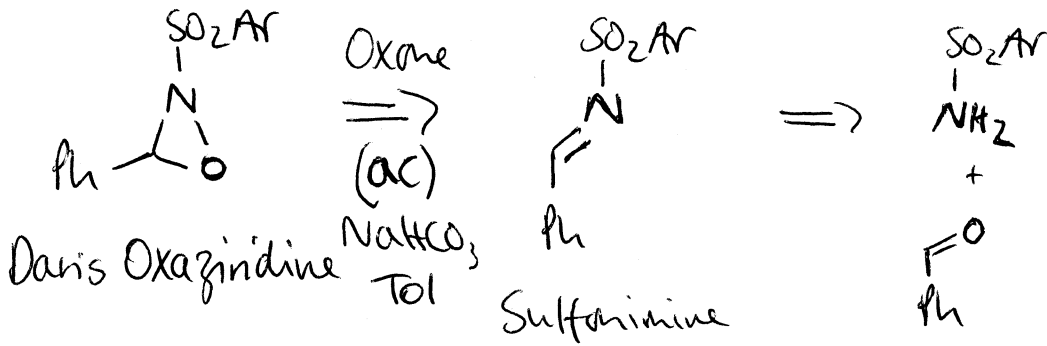 SO2Ar
N
Ph
O
Davis Oxaziridine
Oxone
(ac)
NaHCO3
Tol
SO2Ar
N
Ph
Sulfonimine
SO2Ar
NH2
+
O
Ph